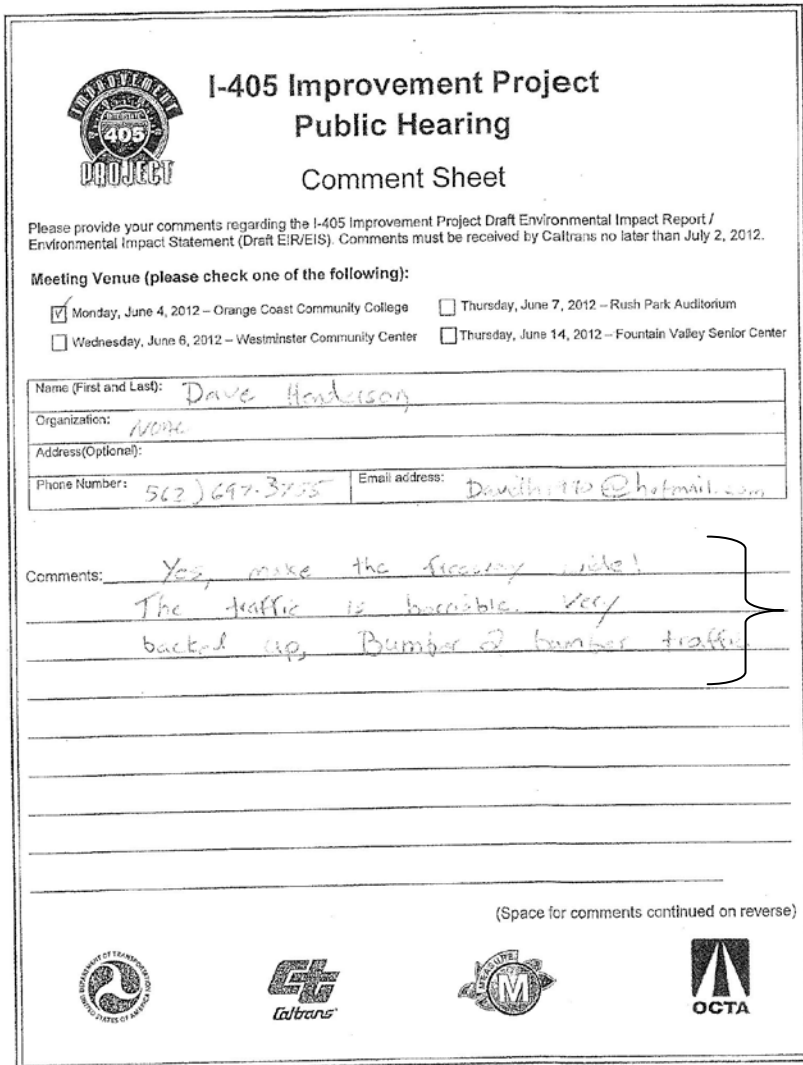 IMPROVEMENT
405
PROJECT
I-405 Improvement Project
Public Hearing
Comment Sheet
Please provide your comments regarding the I-405 Improvement Project Draft Environmental Impact Report /
Environmental Impact Statement (Draft EIR/EIS). Comments must be received by Caltrans no later than July 2, 2012.
Meeting Venue (please check one of the following):
Monday, June 4, 2012 – Orange Coast Community College
Thursday, June 7, 2012 – Rush Park Auditorium
Wednesday, June 6, 2012 – Westminster Community Center
Thursday, June 14, 2012 – Fountain Valley Senior Center
Name (First and Last): Dave Henderson
Organization: None
Address(Optional):
Phone Number: 562) 697-3755
Email address: @hotmail.com
Comments: Yes, make the freeway wide!
The traffic is horrible. Very
backed up, Bumper 2 bumper traffic
(Space for comments continued on reverse)
DEPARTMENT OF TRANSPORTATION
UNITED STATES OF AMERICA
Caltrans
MEASURE
M
OCTA